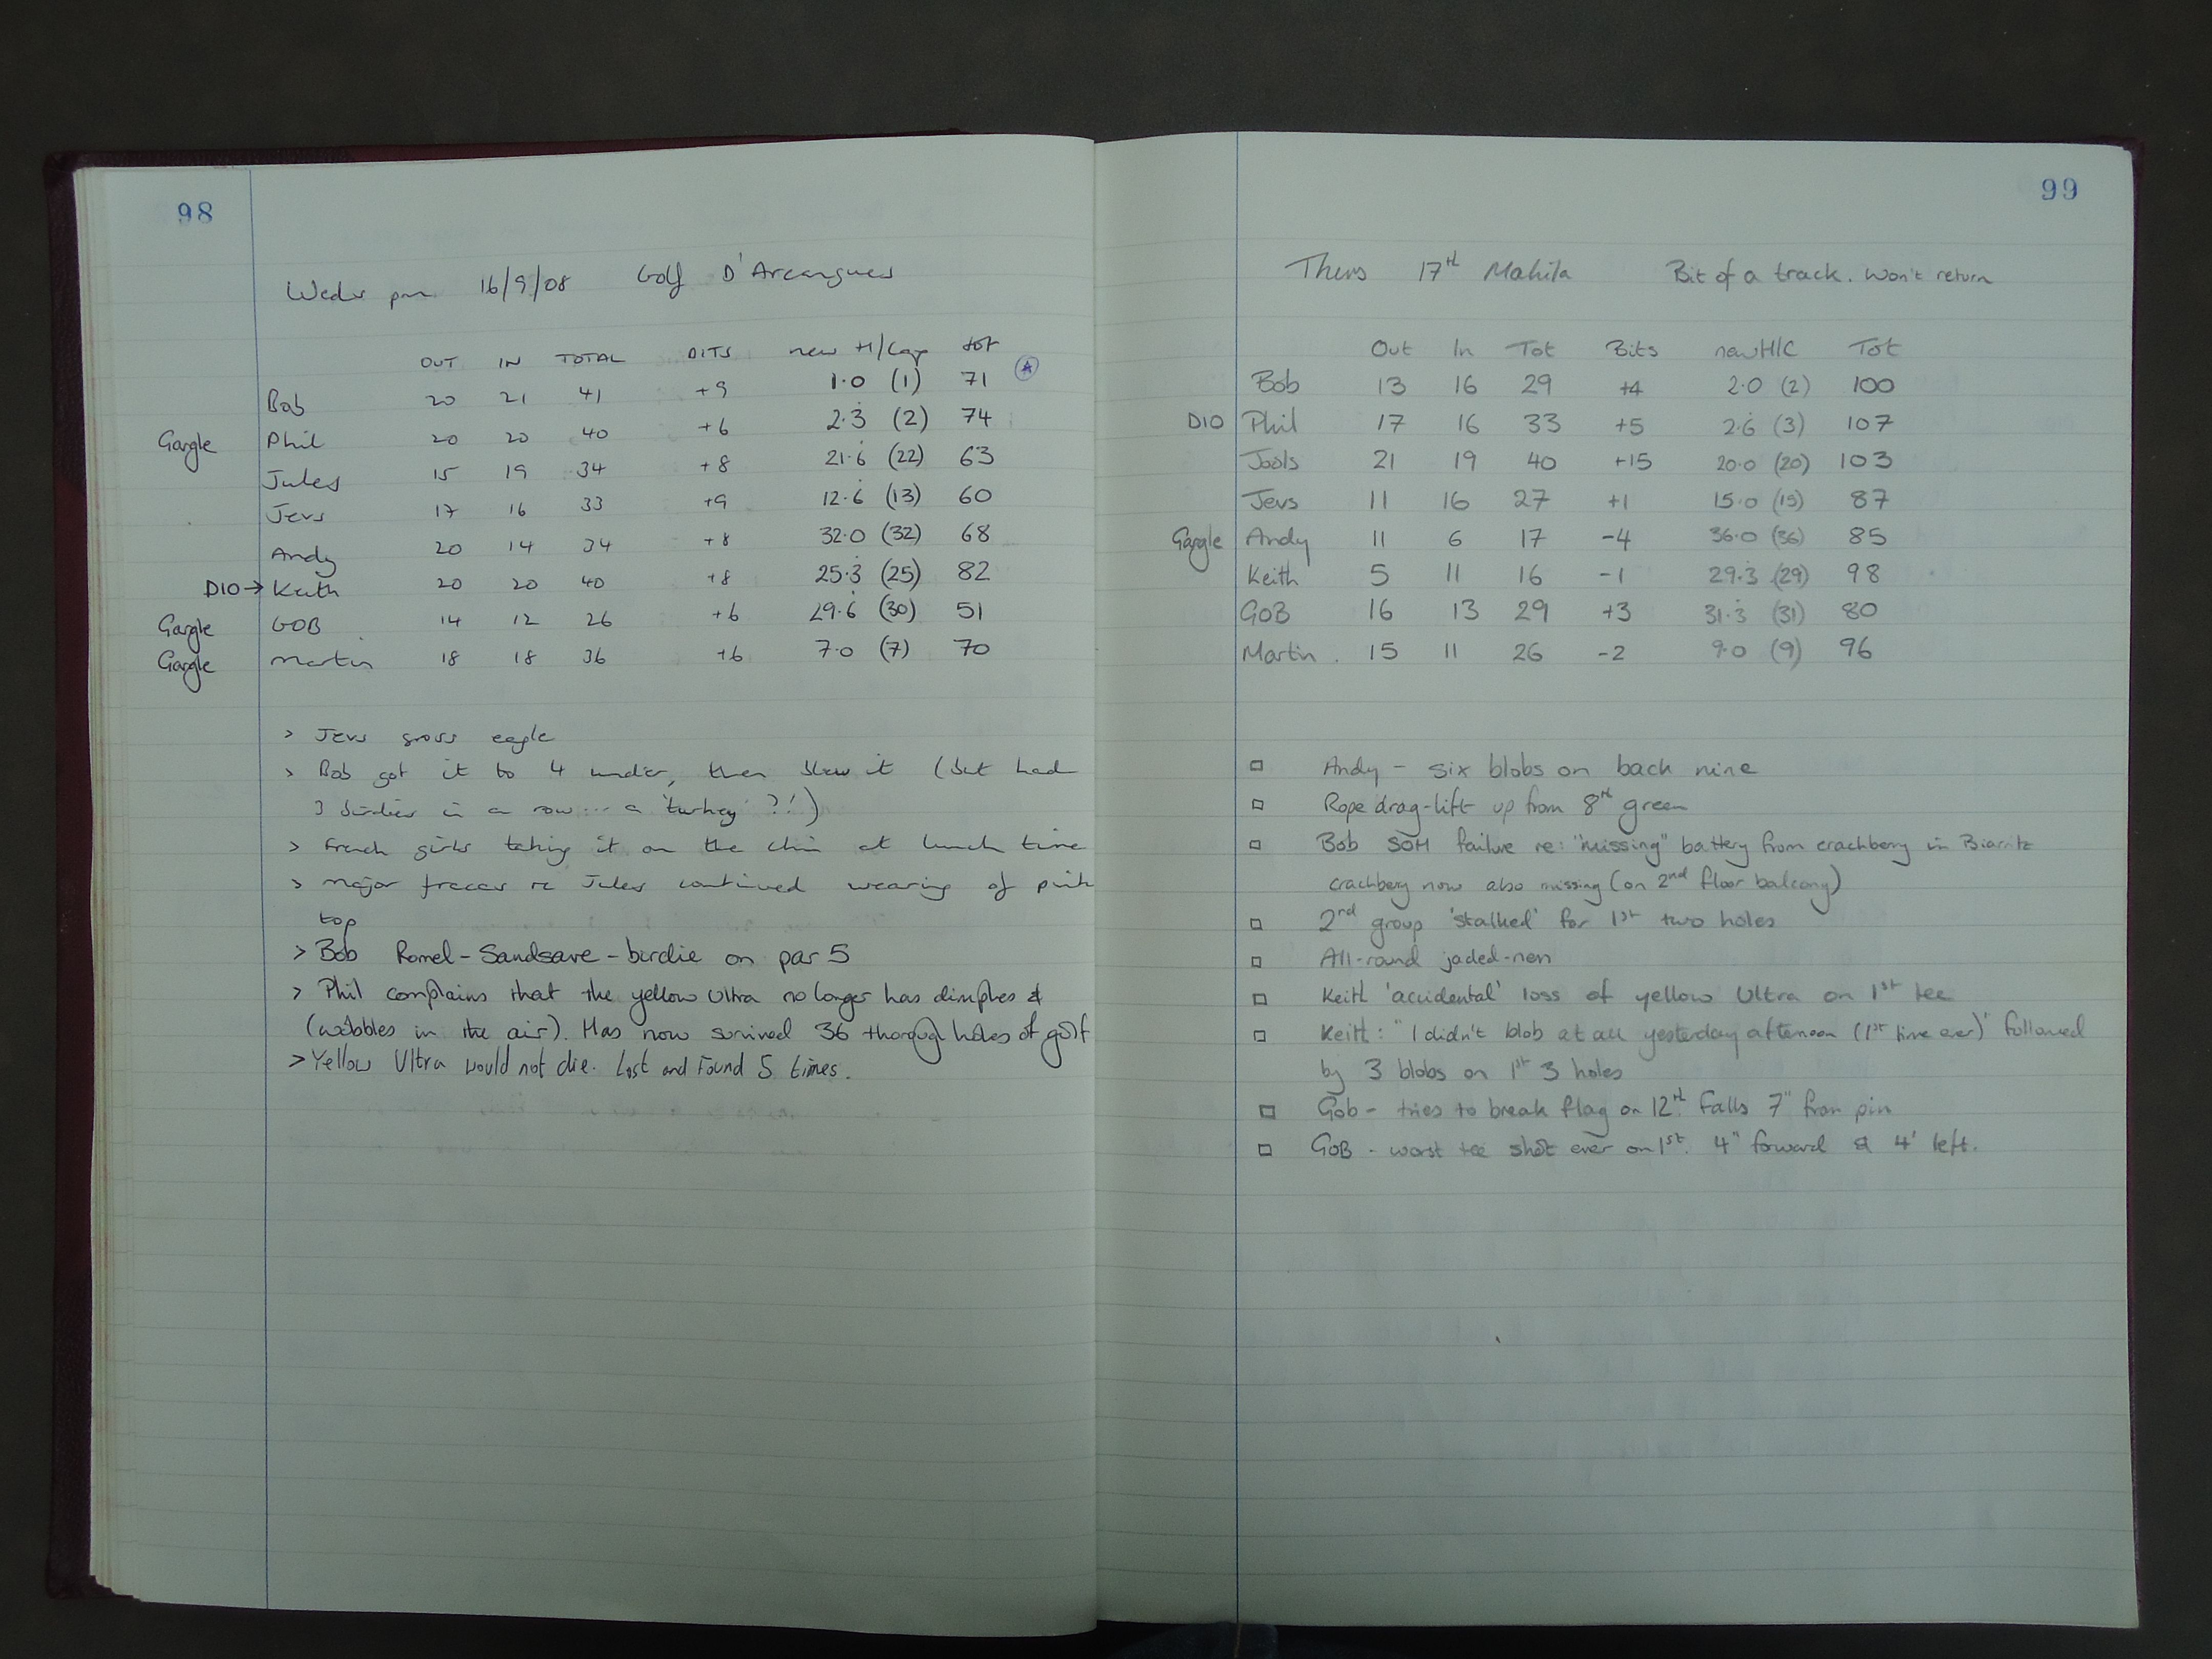 98
Weds pm 16/9/08 Golf D'Arcangues
OUT IN TOTAL BITS new H/Cap tot
Bob 20 21 41 +9 1.0 (1) 71
Gargle Phil 20 20 40 +6 2.3 (2) 74
Jules 15 19 34 +8 21.6 (22) 63
Jevs 17 16 33 +9 12.6 (13) 60
Andy 20 14 34 +8 32.0 (32) 68
D10 → Keith 20 20 40 +8 25.3 (25) 82
Gargle GOB 14 12 26 +6 29.6 (30) 51
Gargle Martin 18 18 36 +6 7.0 (7) 70
> Jevs gross eagle
> Bob got it to 4 under, then blew it (but had
3 birdies in a row ... a 'turkey' ?!)
> French girls taking it on the chin at lunch time
> Major fracas re Jules continued wearing of pink
top
> Bob Romel - Sandsave - birdie on par 5
> Phil complains that the yellow Ultra no longer has dimples &
(wobbles in the air). Has now survived 36 thorough holes of golf
> Yellow Ultra would not die. Lost and Found 5 times.
99
Thurs 17th Makila Bit of a track. Won't return
Out In Tot Bits new H/C Tot
Bob 13 16 29 +4 2.0 (2) 100
D10 Phil 17 16 33 +5 2.6 (3) 107
Jools 21 19 40 +15 20.0 (20) 103
Jevs 11 16 27 +1 15.0 (15) 87
Gargle Andy 11 6 17 -4 36.0 (36) 85
Keith 5 11 16 -1 29.3 (29) 98
GOB 16 13 29 +3 31.3 (31) 80
Martin. 15 11 26 -2 9.0 (9) 96
□ Andy - six blobs on back nine
□ Rope drag-lift up from 8th green
□ Bob SOH failure re: "missing" battery from crackberry in Biarritz
crackberry now also missing (on 2nd floor balcony)
□ 2nd group 'stalked' for 1st two holes
□ All-round jaded-ness
□ Keith 'accidental' loss of yellow Ultra on 1st tee
□ Keith: "I didn't blob at all yesterday afternoon (1st time ever)" followed
by 3 blobs on 1st 3 holes
□ Gob - tries to break flag on 12th. Falls 7" from pin
□ GOB - worst tee shot ever on 1st. 4" forward & 4' left.